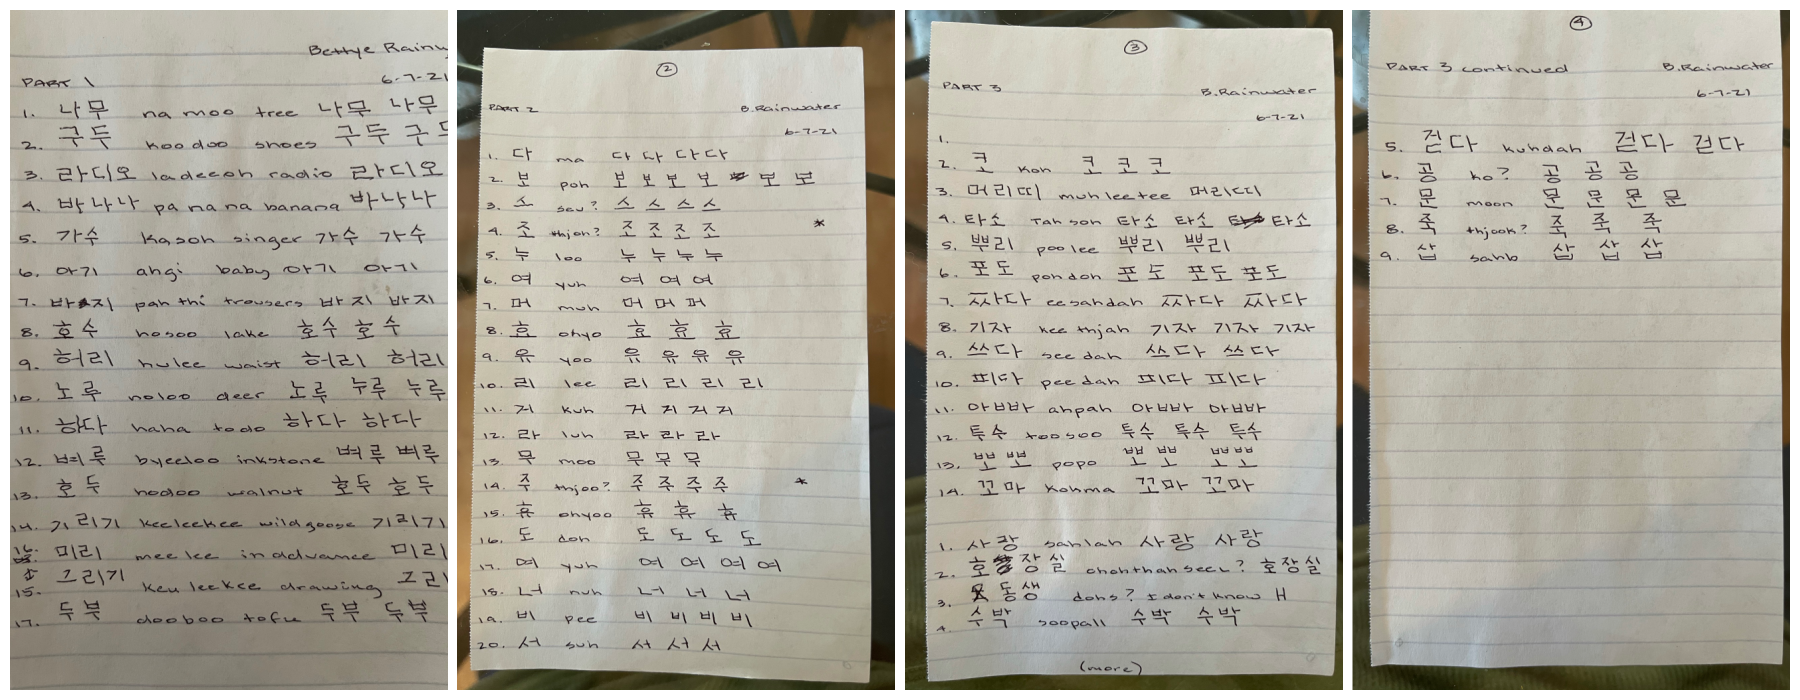 Bettye Rainw
PART 1
6-7-21
1. 나무 na moo tree 나무 나무
2. 구두 koodoo shoes 구두 구두
3. 라디오 ladeeoh radio 라디오
4. 바나나 pa na na banana 바나나
5. 가수 kasoh singer 가수 가수
6. 아기 ahgi baby 아기 아기
7. 바지 pah thi trousers 바지 바지
8. 호수 hosoo lake 호수 호수
9. 허리 hulee waist 허리 허리
10. 노루 noloo deer 노루 누루 누루
11. 하다 haha to do 하다 하다
12. 벼루 byeeloo inkstone 벼루 벼루
13. 호두 hodoo walnut 호두 호두
14. 기리기 keeleekee wild goose 기리기
16. 미리 meelee in advance 미리
15. 그리기 keuleekee drawing 그리
17. 두부 dooboo tofu 두부 두부
②
PART 2 B.Rainwater
6-7-21
1. 다 ma 다 다 다 다
2. 보 poh 보 보 보 보 보 보
3. 스 seu? 스 스 스 스
4. 조 thjoh? 조 조 조 조 *
5. 누 loo 누 누 누 누
6. 여 yuh 여 여 여
7. 머 muh 머 머 머
8. 효 ohyo 효 효 효
9. 유 yoo 유 유 유 유
10. 리 lee 리 리 리 리
11. 거 kuh 거 저 거 거
12. 라 luh 라 라 라
13. 무 moo 무 무 무
14. 주 thjoo? 주 주 주 주 *
15. 휴 ohyoo 휴 휴 휴
16. 도 doh 도 도 도 도
17. 여 yuh 여 여 여 여
18. 너 nuh 너 너 너
19. 비 pee 비 비 비 비
20. 서 suh 서 서 서
③
PART 3 B.Rainwater
6-7-21
1.
2. 코 Koh 코 코 코
3. 머리띠 muhleetee 머리띠
4. 타소 Tah soh 타소 타소 타소
5. 뿌리 poolee 뿌리 뿌리
6. 포도 pohdoh 포도 포도 포도
7. 짜다 eesahdah 짜다 짜다
8. 기자 kee thjah 기자 기자 기자
9. 쓰다 see dah 쓰다 쓰다
10. 피다 pee dah 피다 피다
11. 아빠 ahpah 아빠 아빠
12. 투수 toosoo 투수 투수 투수
13. 뽀뽀 popo 뽀뽀 뽀뽀
14. 꼬마 Kohma 꼬마 꼬마
1. 사랑 sahlah 사랑 사랑
2. 호장실 ohohthahseel? 호장실
3. 동생 dohs? I don't know H
4. 수박 soopall 수박 수박
(more)
④
PART 3 continued B.Rainwater
6-7-21
5. 걷다 kuhdah 걷다 걷다
6. 공 ko? 공 공 공
7. 문 moon 문 문 문 문
8. 죽 thjook? 죽 죽 죽
9. 삽 sahb 삽 삽 삽